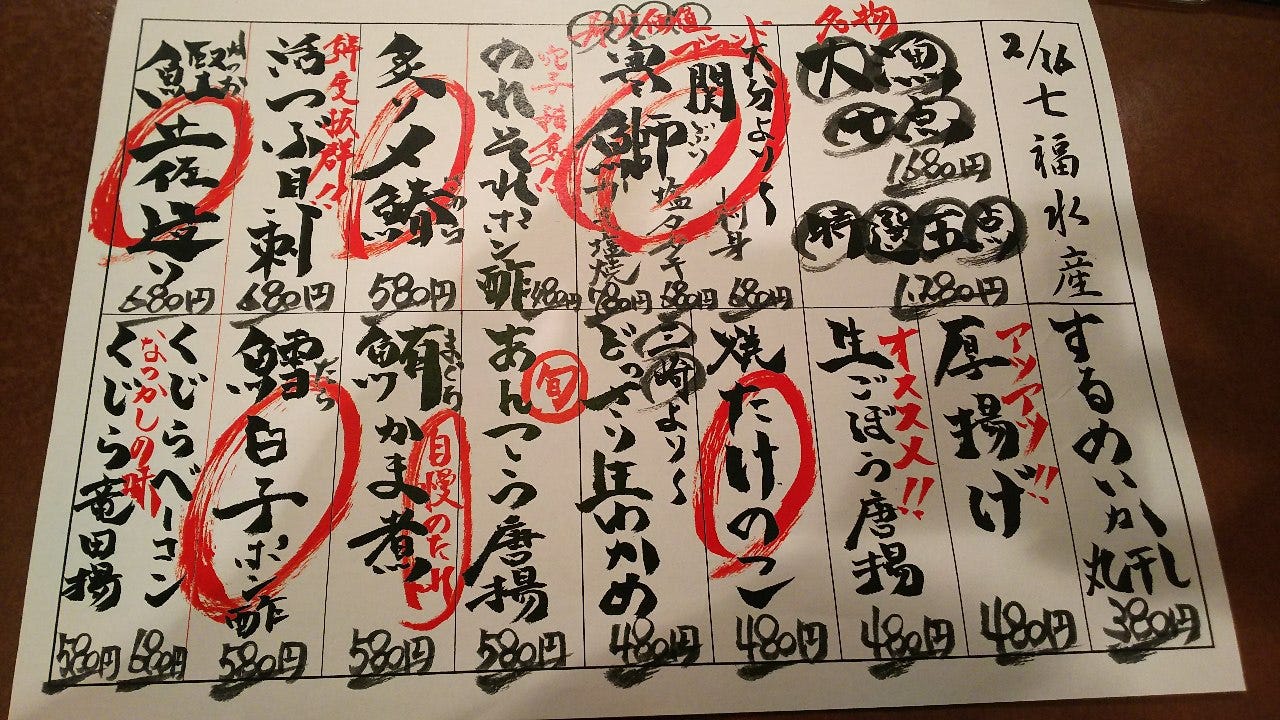 2/16 七福水産
名物
大漁
点
1,680円
特選五点
1,280円
希少価値
ブランド
大分より〜
関ぶり
刺身
680円
塩タタキ
680円
寒鰤
塩焼
780円
穴子稚魚!!
のれそれポン酢
480円
炙り〆鯖
580円
鮮度抜群!!
活つぶ貝刺
680円
土佐造り
680円
するめいか丸干し
380円
アツアツ!!
厚揚げ
480円
オススメ!!
生ごぼう唐揚
480円
焼たけのこ
480円
三崎より〜
どっさり生わかめ
480円
旬
あんこう唐揚
580円
まぐろ
鮪かま煮
自慢のたれ
580円
たら
鱈白子ポン酢
580円
くじらベーコン
680円
なつかしの味
くじら竜田揚
580円